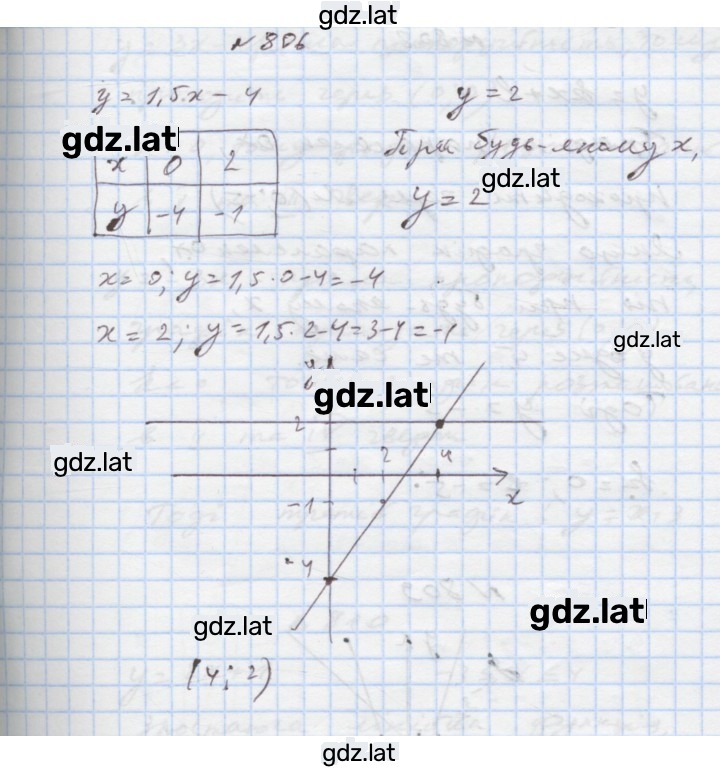 gdz.lat
№ 806
y = 1,5x - 4 y = 2
gdz.lat
x 0 2 При будь-якому x,
gdz.lat
y -4 -1 y = 2
x = 0; y = 1,5·0-4 = -4
x = 2; y = 1,5·2-4=3-4=-1
gdz.lat
y
gdz.lat
2
2 4
gdz.lat
x
-1
-4
gdz.lat
gdz.lat
(4; 2)
gdz.lat